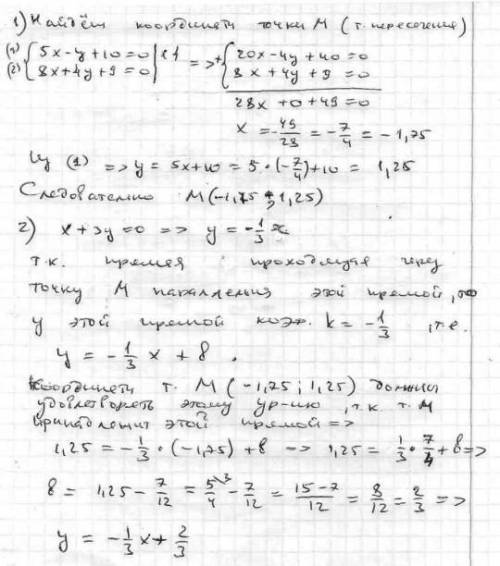 1) Найдём координаты точки M (т. пересечения)
(1) { 5x-y+10=0 | ·4 => + { 20x-4y+40=0
(2) { 8x+4y+9=0 { 8x+4y+9=0
28x+0+49=0
x=-49/28=-7/4=-1,75
Из (1) => y=5x+10=5·(-7/4)+10=1,25
Следовательно M(-1,75; 1,25)
2) x+3y=0 => y=-1/3x
т.к. прямая проходящая через
точку M параллельна этой прямой, то
у этой прямой коэф. k=-1/3, т.е.
y=-1/3x+8.
Координаты т. M(-1,75; 1,25) должны
удовлетворять этому ур-ию, т.к. т. M
принадлежит этой прямой =>
1,25=-1/3·(-1,75)+8 -> 1,25=1/3·7/4+8=>
8=1,25-7/12=5/4\3-7/12=15-7/12=8/12=2/3=>
y=-1/3x+2/3